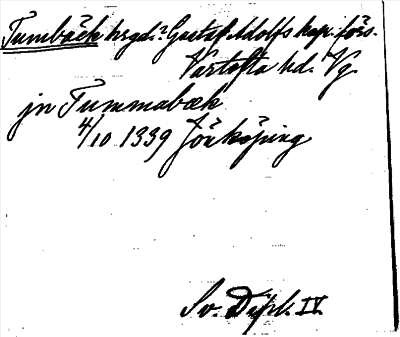 Tumbäck hrgd? Gustaf Adolfs kap. förs.
Vartofta hd. Vg.
jn Tummabæk
4/10 1339 Jönköping
Sv. Dipl. IV.